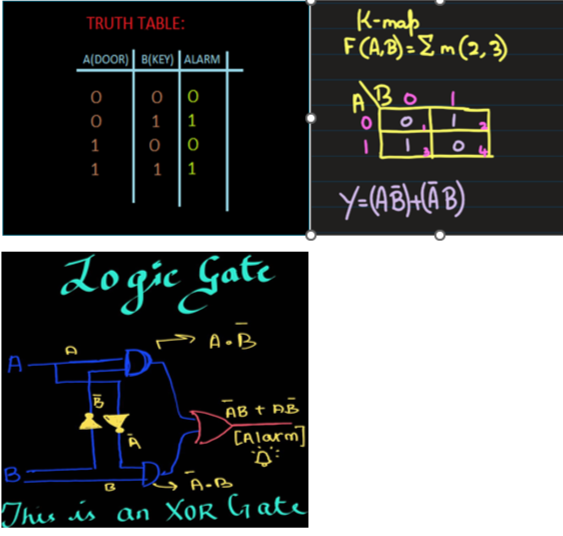 TRUTH TABLE:
A(DOOR) B(KEY) ALARM
0 0 0
0 1 1
1 0 0
1 1 1
K-map
F(A,B)=Σm(2,3)
A\B 0 1
0 0 1 1 2
1 1 3 0 4
Y=(AB̄)+(ĀB)
Logic Gate
A A A.B̄
B̄ Ā
ĀB + AB̄
[Alarm]
B B Ā.B
This is an XOR Gate